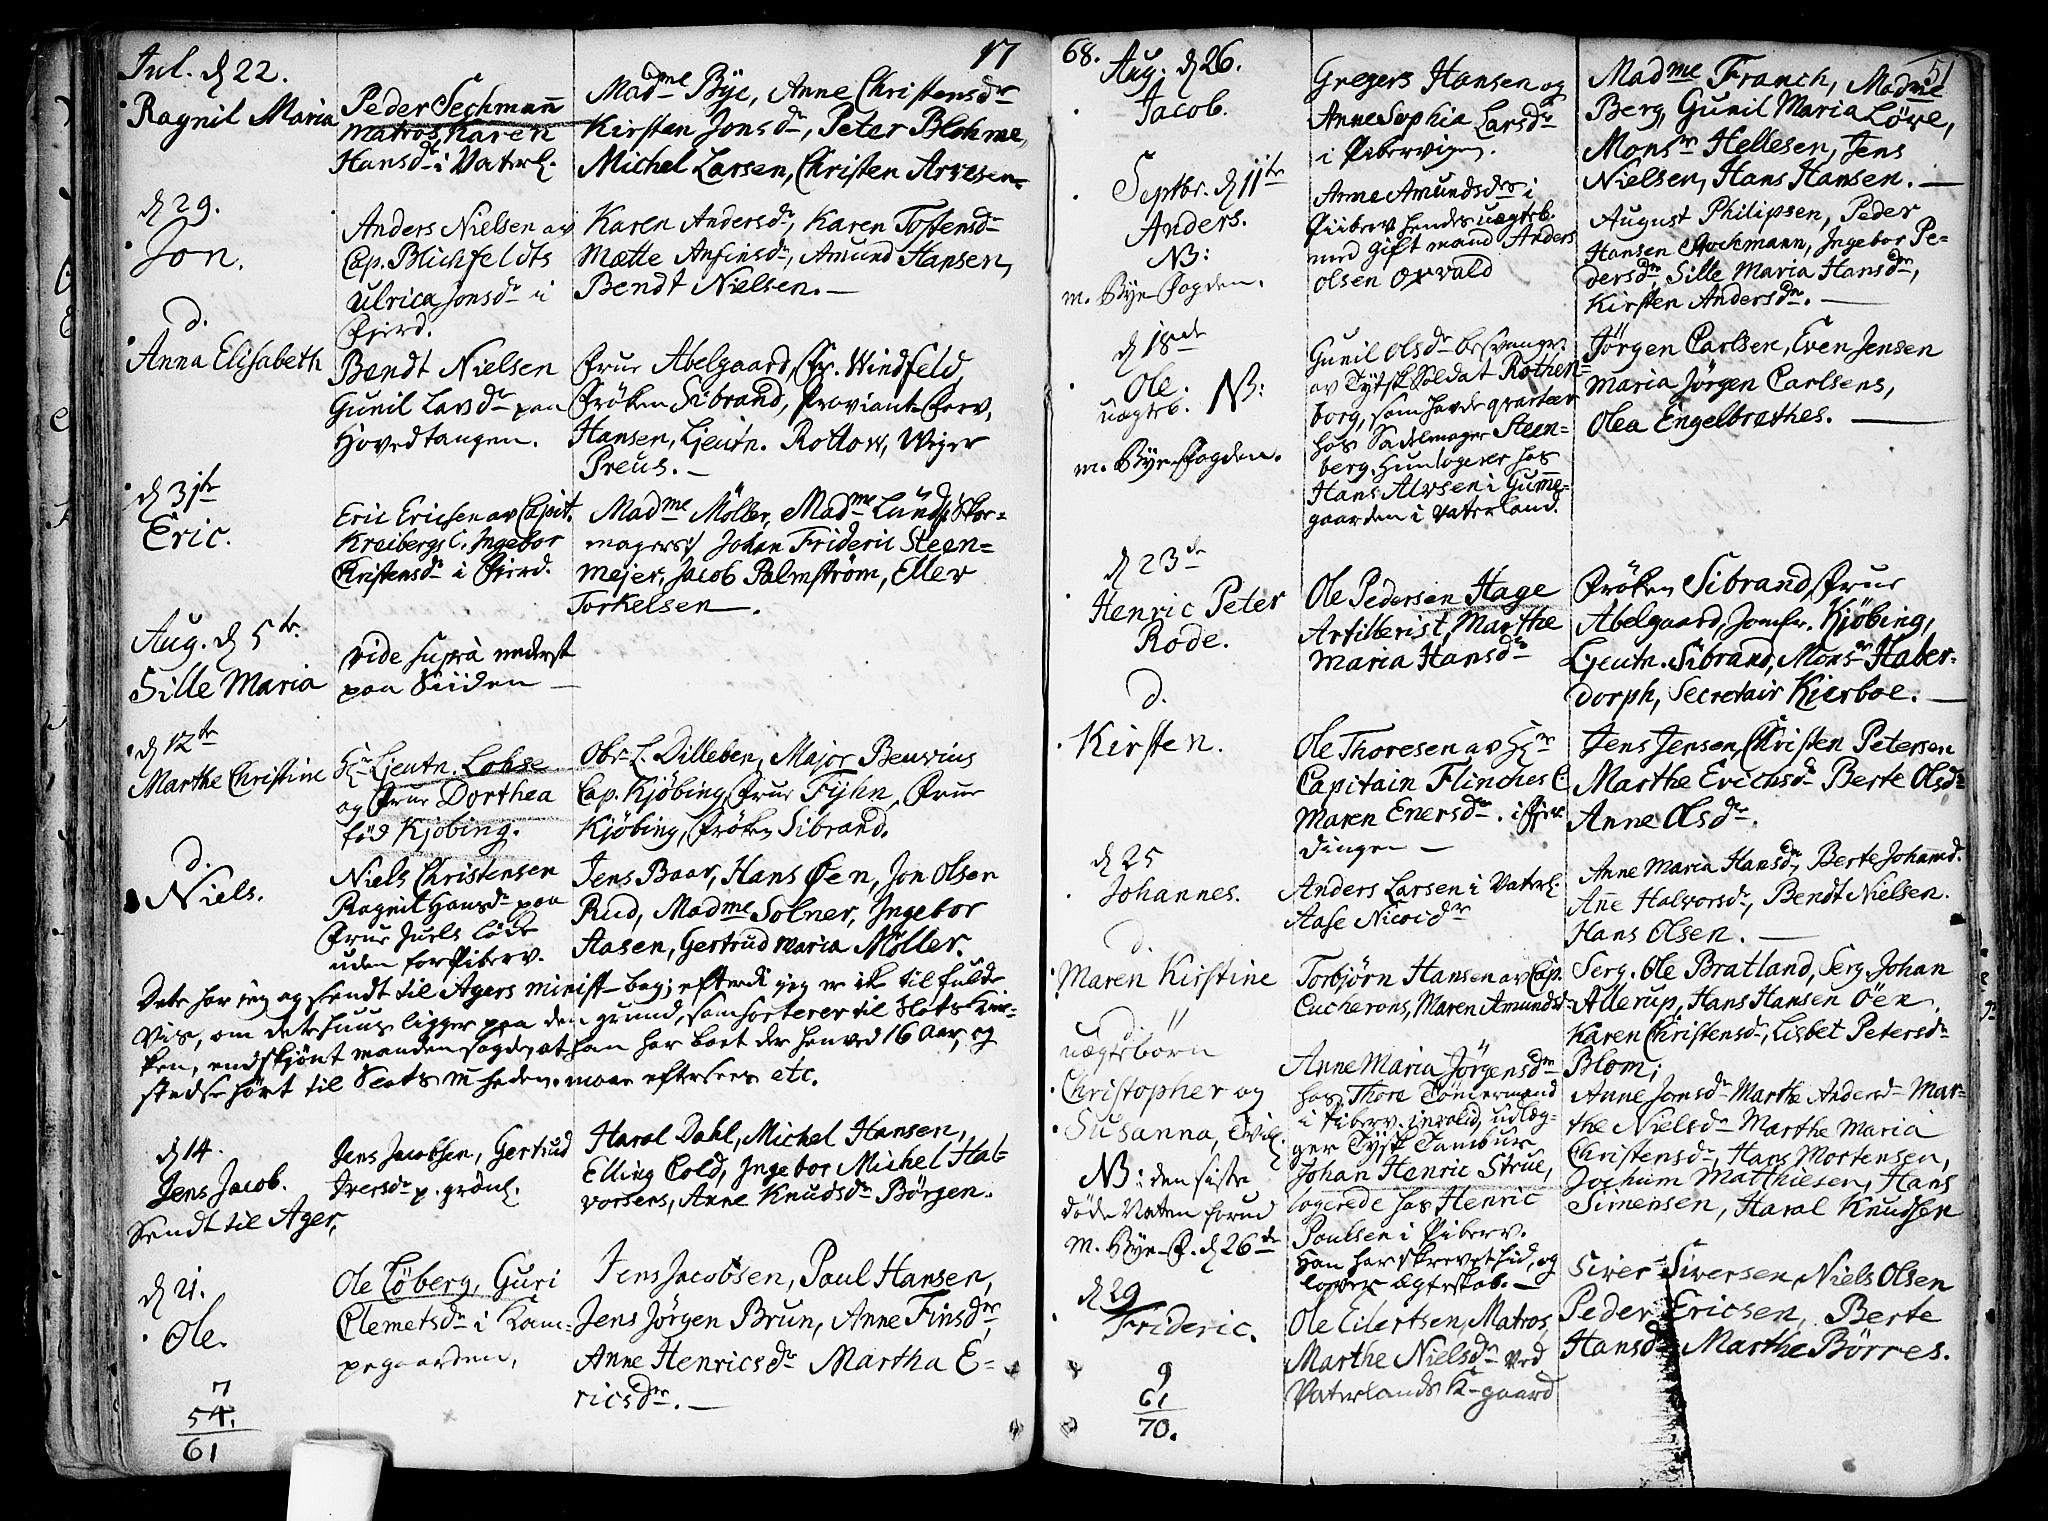 17
Jul. d 22.
Ragnil Maria
Peder Sechmann
Matros, Karen
Hansdr i Vaterl.
Madme Bye, Anne Christensdr
Kirsten Jonsdr, Peter Blohme,
Michel Larsen, Christen Arvesen
d 29.
Jon.
Anders Nielsen av
Cap. Blichfeldts
Ulrica Jonsdr i
Fjerd.
Karen Andersdr, Karen Tostensdr
Mætte Anfinsdr, Amund Hansen,
Bendt Nielsen.
d.
Anna Elisabeth
Bendt Nielsen
Gunil Larsdr paa
Hovedtangen.
Frue Abelgaard, Fr. Windfeld,
Frøken Sibrand, Proviant-Forv.
Hansen, Ljeutn. Rottow, Wiger
Preus.
d 31te
Eric.
Eric Ericsen av Capit.
Kreibergs C. Ingebor
Christensdr i Fjerd.
Madme Möller, Madme Lund, Skor=
magers, Johan Frideric Steen=
mejer, Jacob Palmstrøm, Eller
Torkelsen.
Aug. d 5te.
Sille Maria
vide supra nederst
paa Siiden
d 12te
Marthe Christine
Hr Ljeutn. Lohse
og Frue Dorthea
fød Kjøbing.
Obr L. Dilleben, Major Benvius
Cap. Kjöbing, Frue Fyhn, Frue
Kjöbing, Frøken Sibrand.
d.
Niels.
Niels Christensen
Ragnil Hansdr paa
Frue Juels løkke
uden for Piberv.
Jens Baar, Hans Øen, Jon Olsen
Rud, Madme Solner, Ingebor
Aasen, Gertrud Maria Möller.
Dette har jeg og sendt til Agers minist-bog; efterdi jeg er ik til fulde
vis, om det huus ligger paa den grund, som horterer til Slots Kir=
ken, endskjönt manden sagde, at han har boet der henved 16 Aar, og
stedse hört til Slots m heden. maae eftersees etc.
d 14.
Jens Jacob.
Sendt til Ager.
Jens Jacobsen, Gertrud
Iversdr p. grønl.
Haral Dahl, Michel Hansen,
Elling Cold, Ingebor Michel Hal=
vorsens, Anne Knudsdr Børgen.
d 21.
Ole.
Ole Löberg, Guri
Clemetsdr i Kam=
pegaarden,
Jens Jacobsen, Poul Hansen,
Jens Jörgen Brun, Anne Finsdr,
Anne Henricsdr Martha E=
ricsdr.
7
54.
61
68.
51
Aug. d 26.
Jacob.
Gregers Hansen og
Anne Sophia Larsdr
i Pibervigen.
Madme Franch, Madme
Berg, Gunil Maria Løve,
Monsr Hellesen, Jens
Nielsen, Hans Hansen.
Septbr. d 11te
Anders.
NB:
m. Bye-Fogden.
Anne Amundsdr i
Piiberv hendes uægteb.
med gift mand Anders
Olsen Oxvald
August Philipsen, Peder
Hansen Stockmann, Ingebor Pe=
dersdr, Sille Maria Hansdr,
Kirsten Andersdr.
d 18de
Ole.
uægteb. NB:
m. Bye-Fogden.
Gunil Olsdr besvanget
av Tydsk Soldat Rothen=
borg, som havde qvarteer
hos Sadelmager Steen=
berg. Hun logerer hos
Hans Alvsen i Gumme=
gaarden i Vaterland.
Jörgen Carlsen, Even Jensen
Maria Jörgen Carlsens,
Olea Engelbrethes.
d 23de
Henric Peter
Rode.
Ole Pedersen Hage
Artillerist, Marthe
Maria Hansdr
Frøken Sibrand, Frue
Abelgaard, Jomfr. Kjöbing,
Ljeutn. Sibrand, Monsr Haber=
dorph, Secretair Kierboe.
d.
Kirsten.
Ole Thoresen av Hr
Capitain Flinches C.
Maren Enersdr. i Fjer
dingen
Jens Jensen, Christen Petersen
Marthe Erichsdr Berte Olsdr
Anne Olsdr.
d 25
Johannes.
Anders Larsen i Vaterl.
Aase Nicoidr
Anne Maria Hansdr, Berte Johansd.
Anne Halvorsdr, Bendt Nielsen.
Hans Olsen.
d.
Maren Kirstine
Torbjörn Hansen av Cap.
Cucherons, Maren Amundsd
Serg. Ole Bratland, Serg. Johan
Allerup, Hans Hansen Öen,
Karen Christensdr, Lisbet Petersdr
Blom;
d
uægtebörn
Christopher og
Susanna, Tvil.
NB: den siste
döde Vaten forud
m. Bye-F. d 26de
Anne Maria Jörgensdr
hos Thore Töndermand
i Piberv. invalid, udlæg=
ger Tydsk Tambur
Johan Henric Strue,
logerede hos Henric
Poulsen i Piberv.
Han har skrevet hid, og
lover ægteskab.
Anne Jonsdr Marthe Andersdr Mar=
the Nielsdr Marthe Maria
Christensdr, Hans Mortensen,
Jochum Matthiesen, Hans
Simensen, Haral Knudsen
d 29
Frideric.
Ole Eilertsen, Matros,
Marthe Nielsdr ved
Vaterlands K-gaard
Siver Siversen, Niels Olsen
Peder Ericsen, Berte
Hansdr Marthe Börres.
9
61
70.